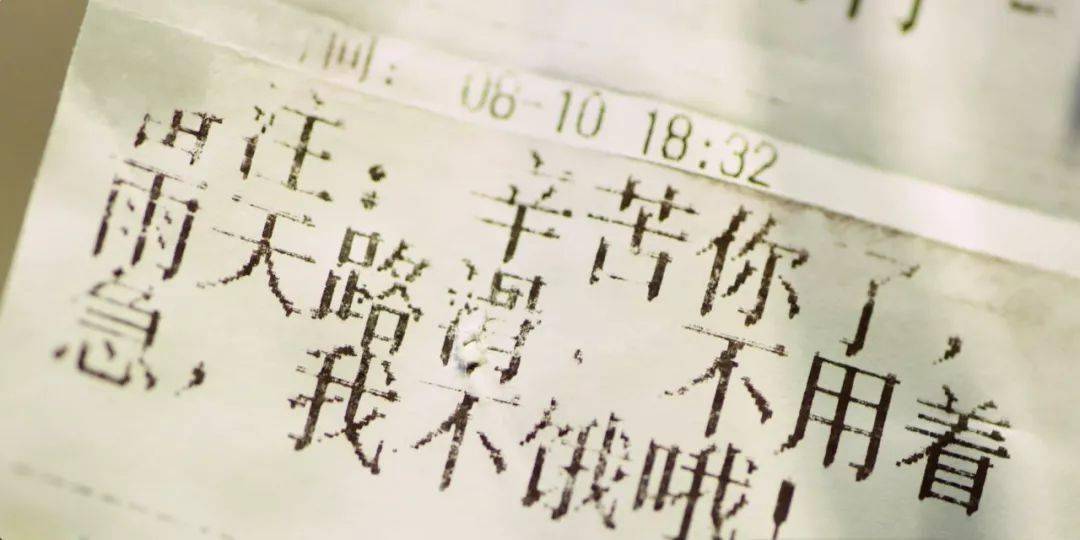 时间: 08-10 18:32
备注: 辛苦你了,
雨天路滑, 不用着
急, 我不饿哦!